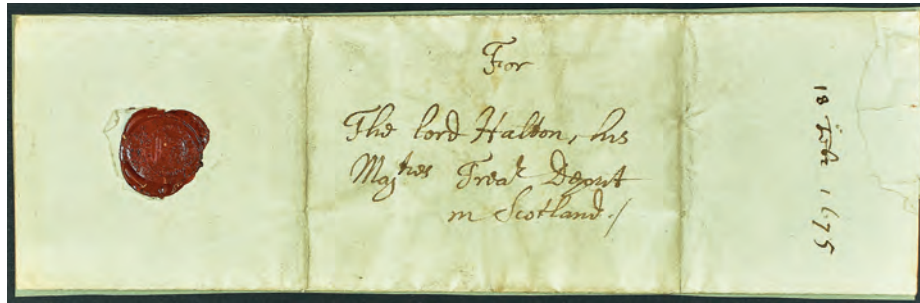 For
The lord Halton, his
Maj^ties Trea^r Deput
in Scotland./
18 Febr 1675